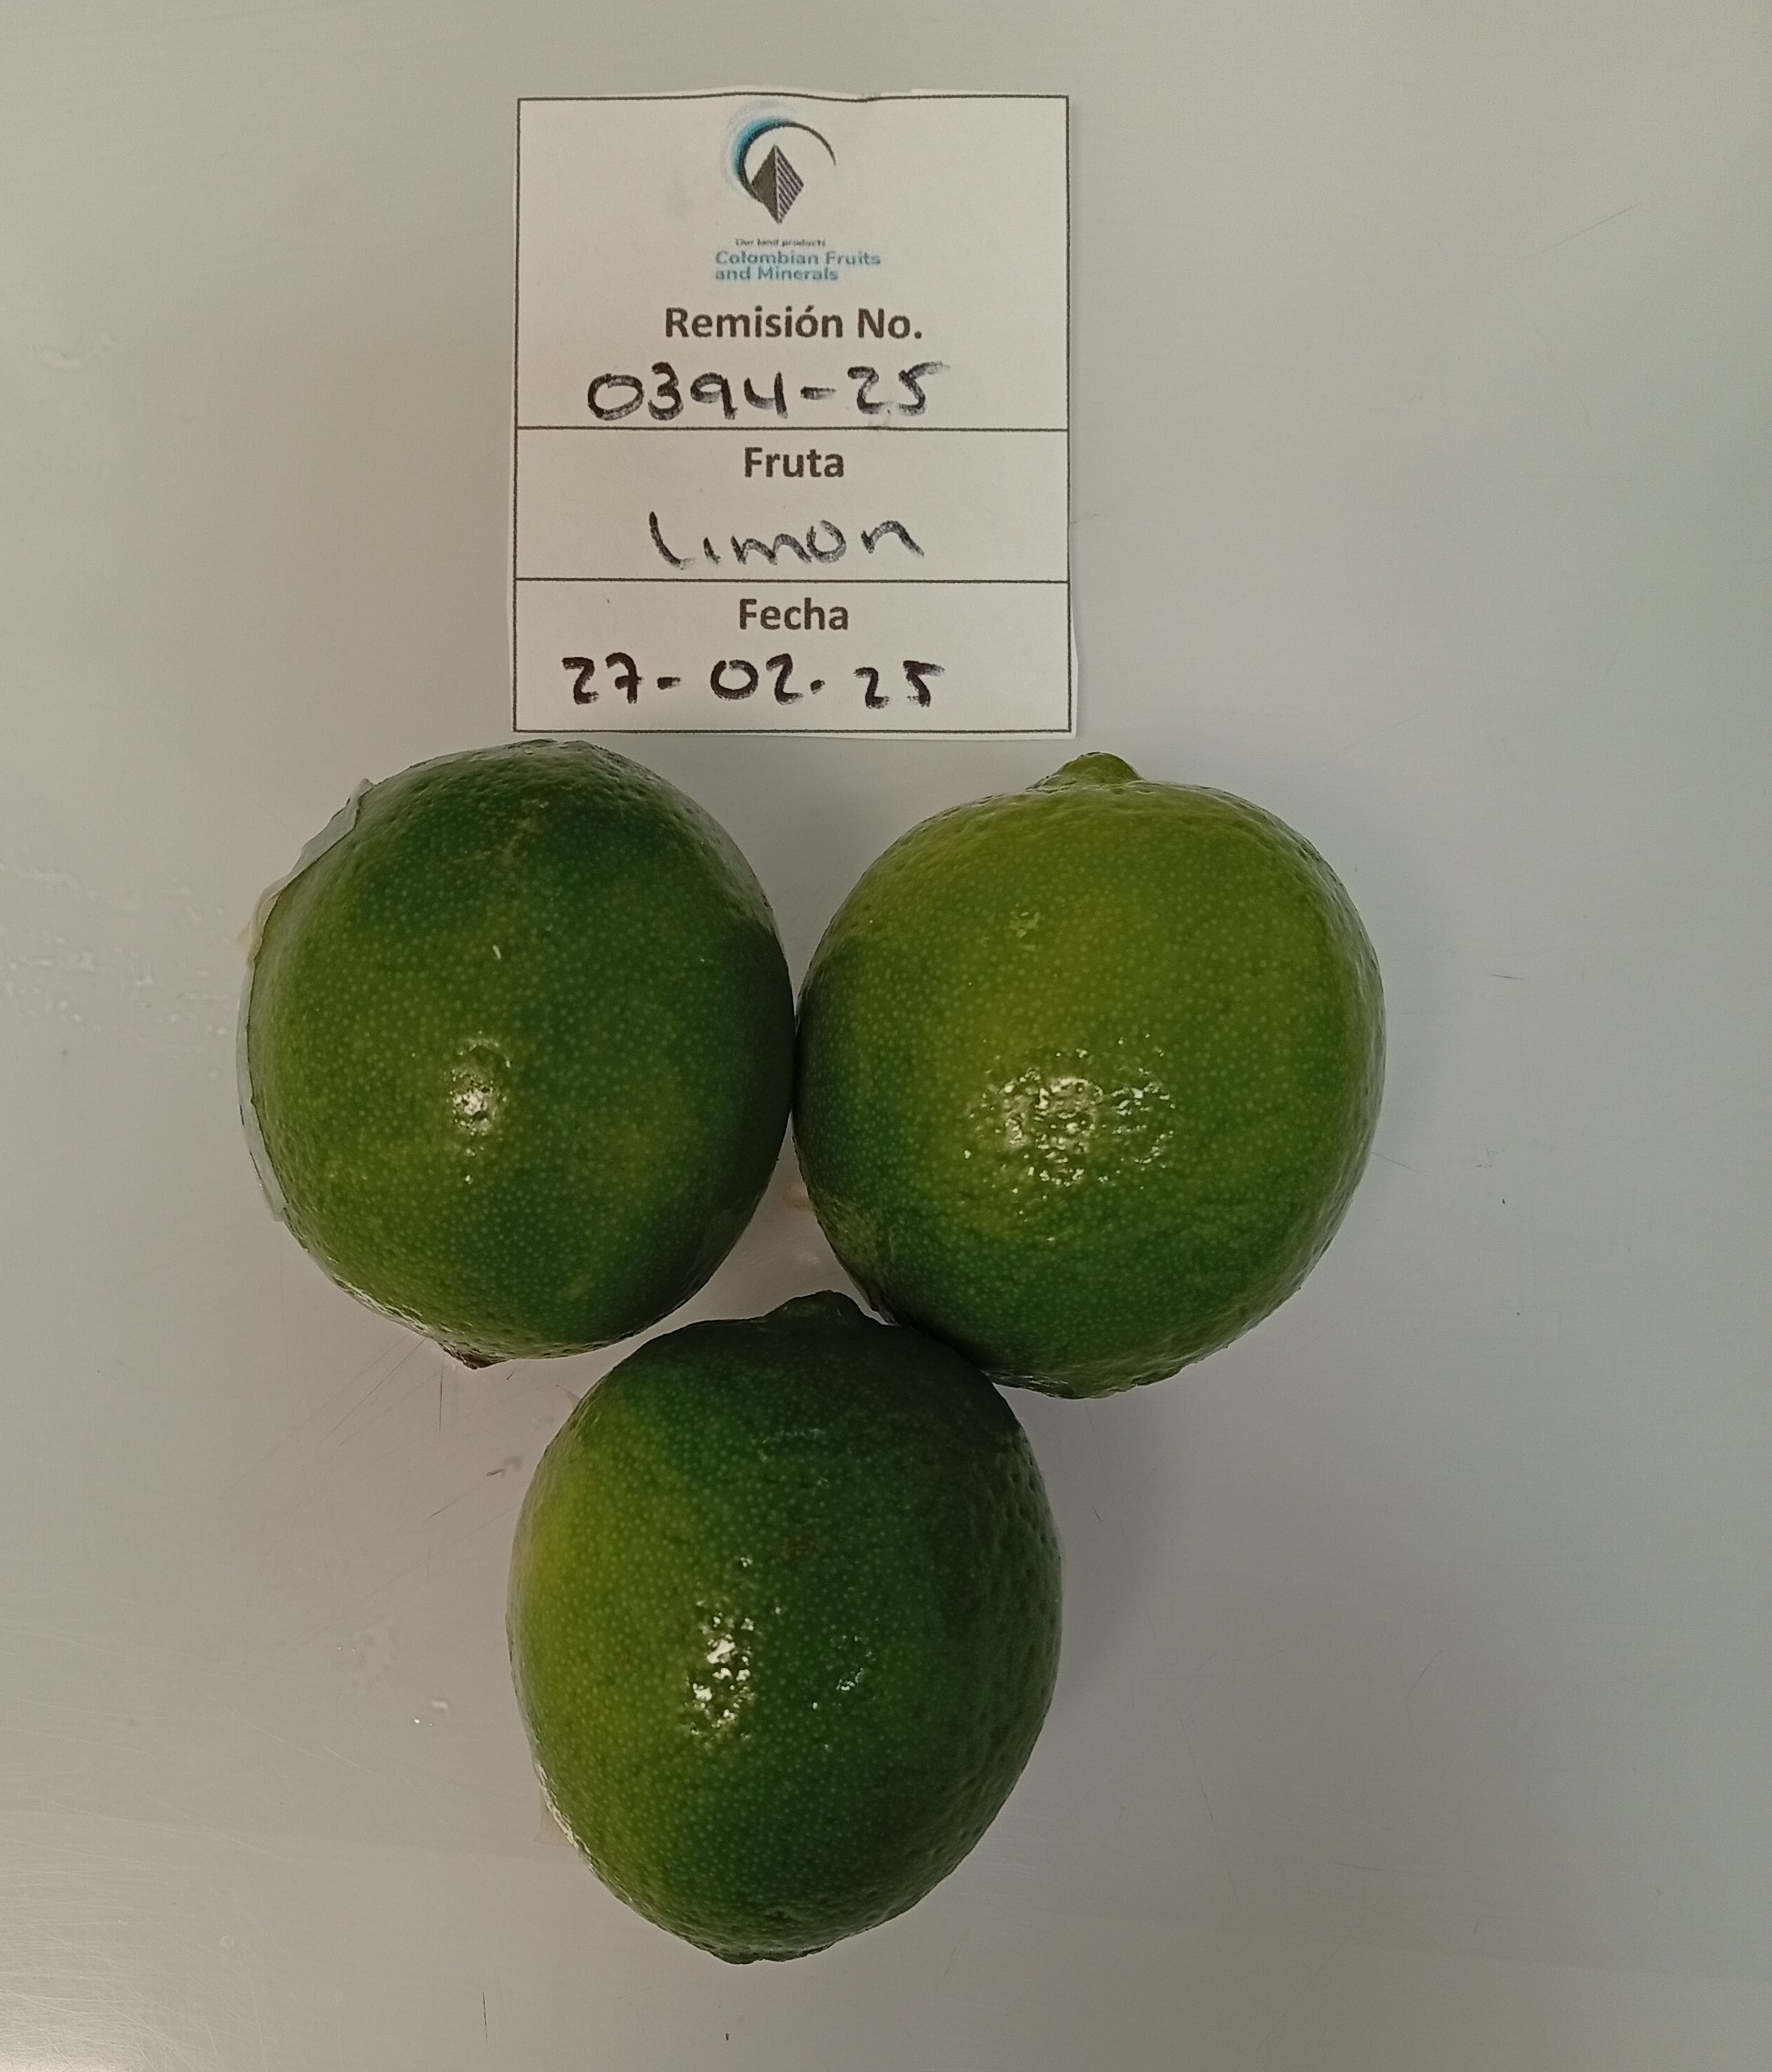 Our land products
Colombian Fruits
and Minerals
Remisión No.
0394-25
Fruta
limon
Fecha
27-02-25